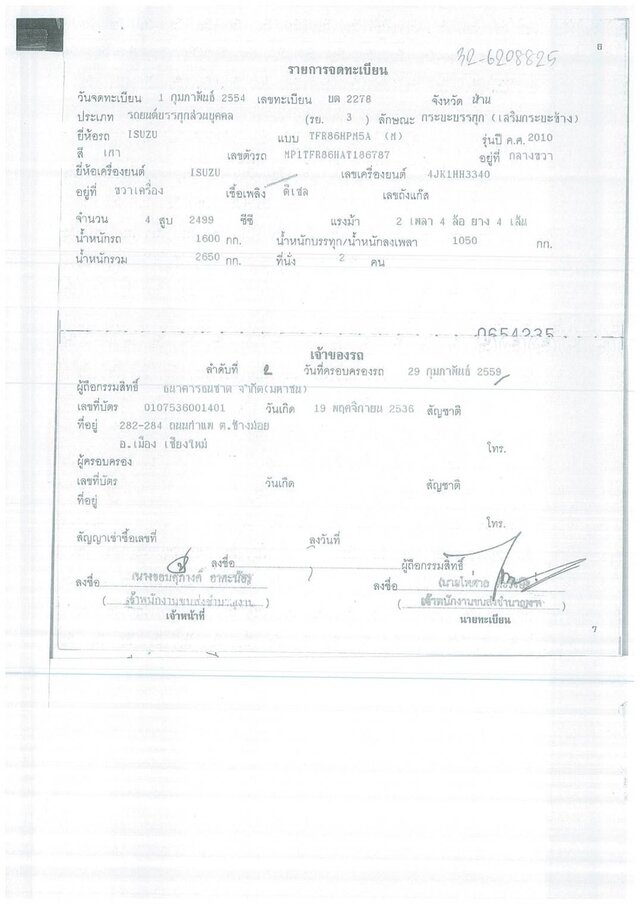 6
32-6208825
รายการจดทะเบียน
วันจดทะเบียน 1 กุมภาพันธ์ 2554 เลขทะเบียน บต 2278 จังหวัด น่าน
ประเภท รถยนต์บรรทุกส่วนบุคคล (รย. 3 ) ลักษณะ กระบะบรรทุก (เสริมกระบะข้าง)
ยี่ห้อรถ ISUZU แบบ TFR86HPM5A (M) รุ่นปี ค.ศ. 2010
สี เทา เลขตัวรถ MP1TFR86HAT186787 อยู่ที่ กลางขวา
ยี่ห้อเครื่องยนต์ ISUZU เลขเครื่องยนต์ 4JK1HH3340
อยู่ที่ ขวาเครื่อง เชื้อเพลิง ดีเซล เลขถังแก๊ส
จำนวน 4 สูบ 2499 ซีซี แรงม้า 2 เพลา 4 ล้อ ยาง 4 เส้น
น้ำหนักรถ 1600 กก. น้ำหนักบรรทุก/น้ำหนักลงเพลา 1050 กก.
น้ำหนักรวม 2650 กก. ที่นั่ง 2 คน
0654235
เจ้าของรถ
ลำดับที่ 2 วันที่ครอบครองรถ 29 กุมภาพันธ์ 2559
ผู้ถือกรรมสิทธิ์ ธนาคารธนชาต จำกัด(มหาชน)
เลขที่บัตร 0107536001401 วันเกิด 19 พฤศจิกายน 2536 สัญชาติ
ที่อยู่ 282-284 ถนนท่าแพ ต.ช้างม่อย
อ.เมือง เชียงใหม่ โทร.
ผู้ครอบครอง
เลขที่บัตร วันเกิด สัญชาติ
ที่อยู่
โทร.
สัญญาเช่าซื้อเลขที่ ลงวันที่
ลงชื่อ ผู้ถือกรรมสิทธิ์
ลงชื่อ ลงชื่อ
( เจ้าพนักงานขนส่งชำนาญงาน ) ( เจ้าพนักงานขนส่งชำนาญงาน )
เจ้าหน้าที่ นายทะเบียน
7